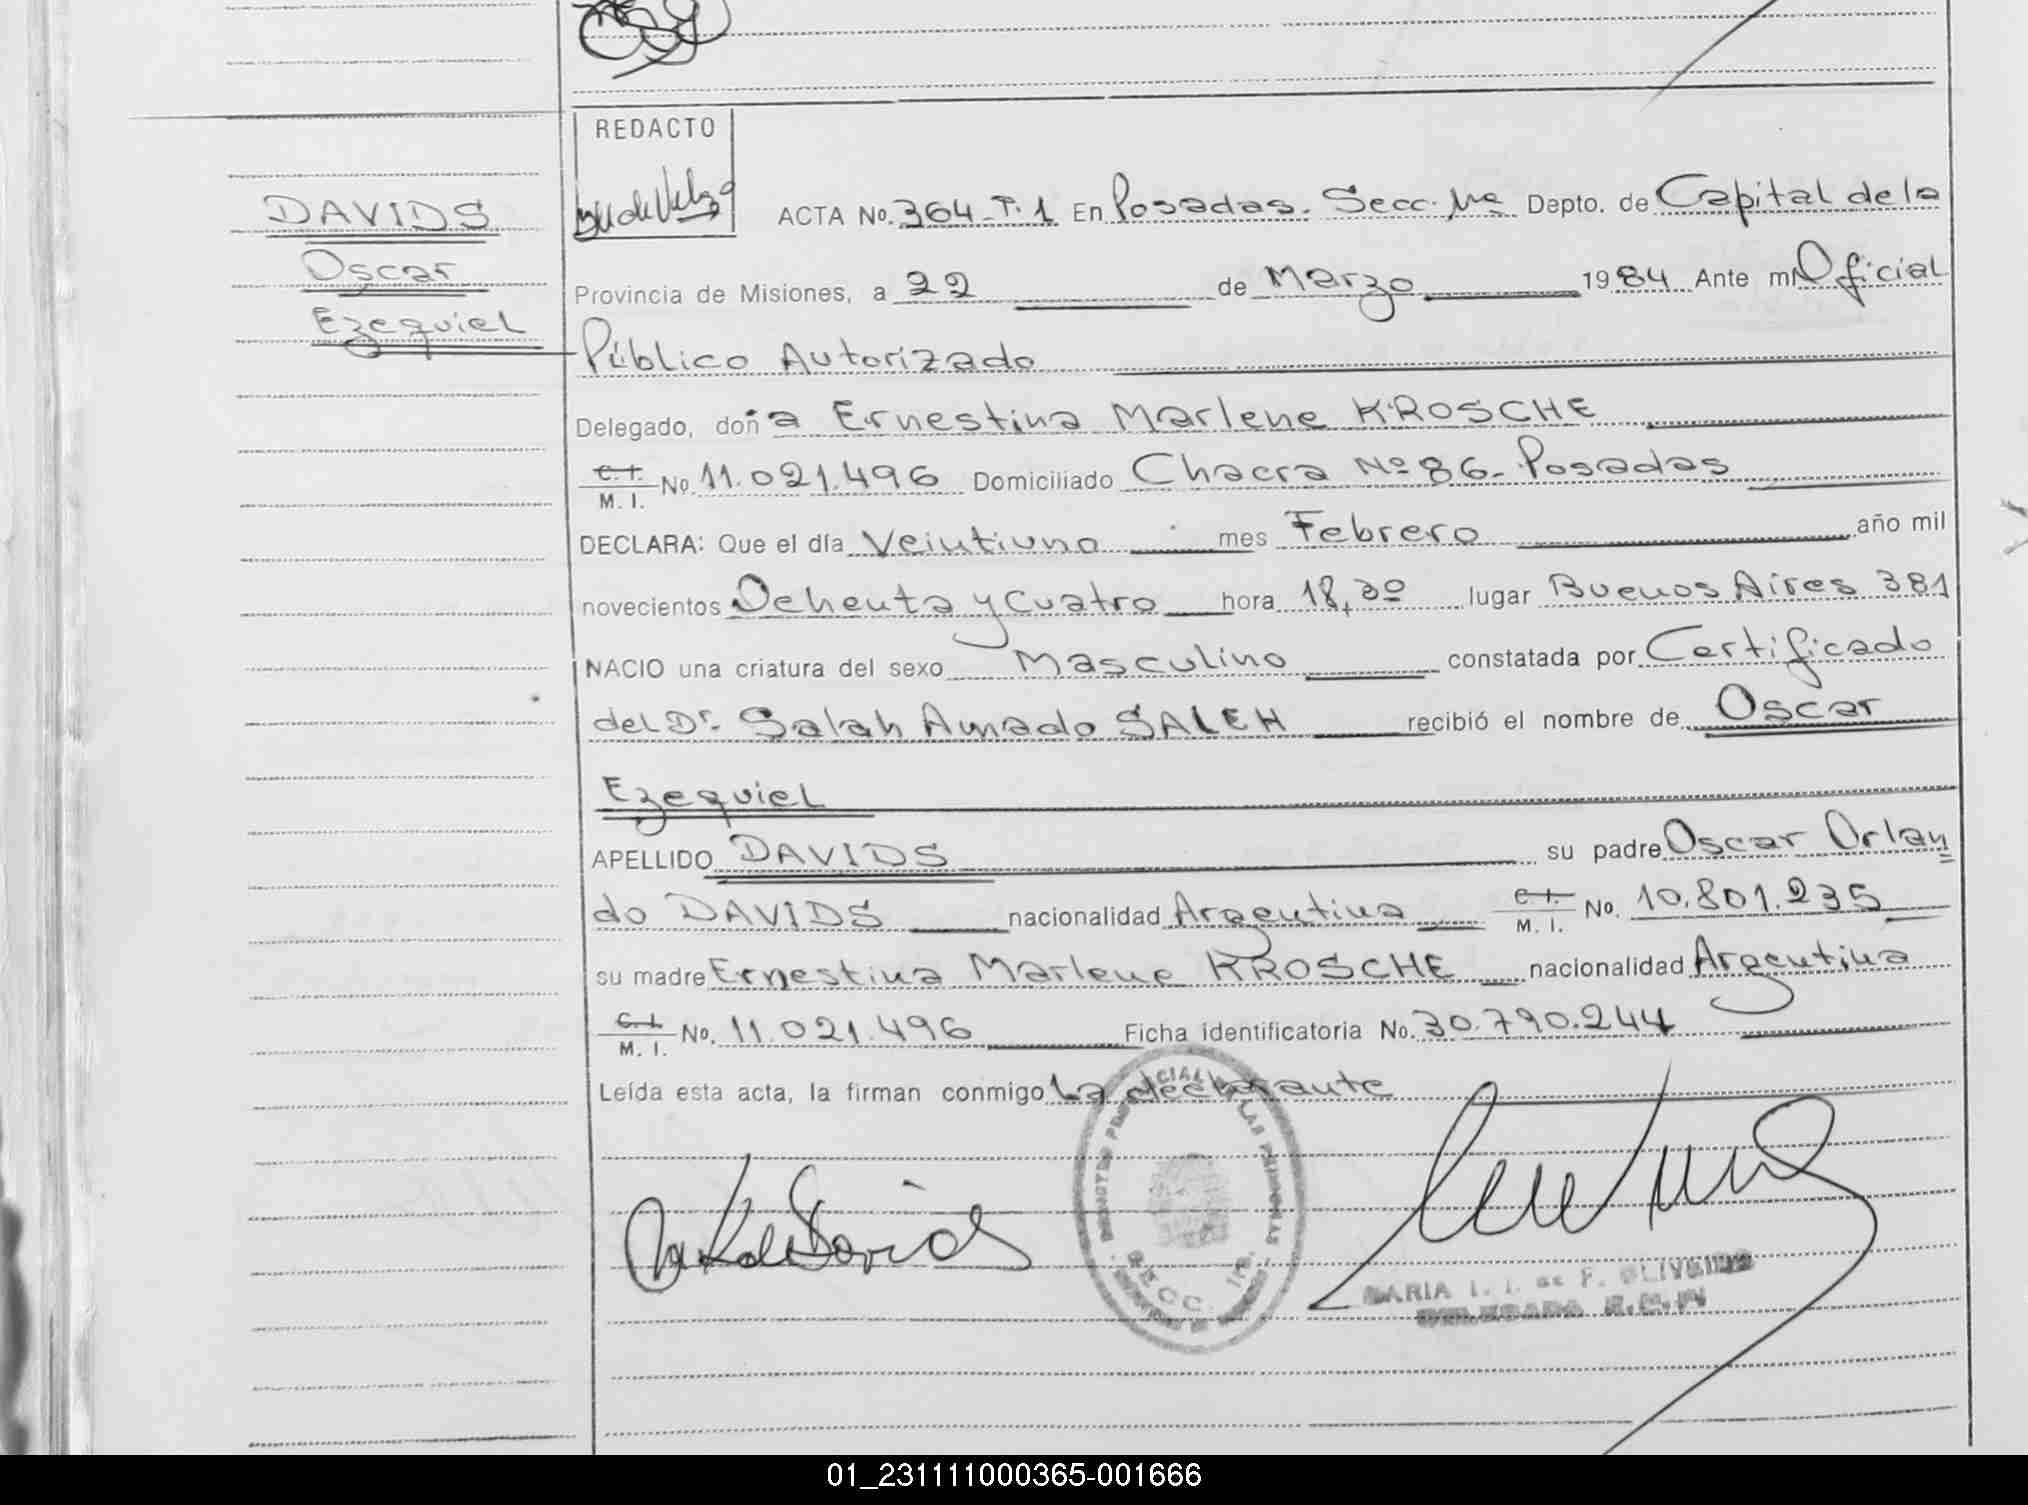 REDACTO
DAVIDS
Oscar
Ezequiel
ACTA No. 364-T.1 En Posadas. Secc. 1ra Depto. de Capital de la
Provincia de Misiones, a 22 de Marzo 1984 Ante mí Oficial
Público Autorizado
Delegado, doña Ernestina Marlene KROSCHE
C. I.
M. I. No. 11.021.496 Domiciliado Chacra Nº 86- Posadas
DECLARA: Que el día Veintiuno mes Febrero año mil
novecientos Ochenta y Cuatro hora 18,30 lugar Buenos Aires 381
NACIO una criatura del sexo Masculino constatada por Certificado
del Dr. Salah Amado SALEH recibió el nombre de Oscar
Ezequiel
APELLIDO DAVIDS su padre Oscar Orlan
do DAVIDS nacionalidad Argentina C. I. M. I. No. 10.801.235
su madre Ernestina Marlene KROSCHE nacionalidad Argentina
C. I.
M. I. No. 11.021.496 Ficha identificatoria No. 30.790.244
Leída esta acta, la firman conmigo La declarante
SECC. 1ra.
MARIA I. I. de F. OLIVEIRA
DELEGADA
01_231111000365-001666